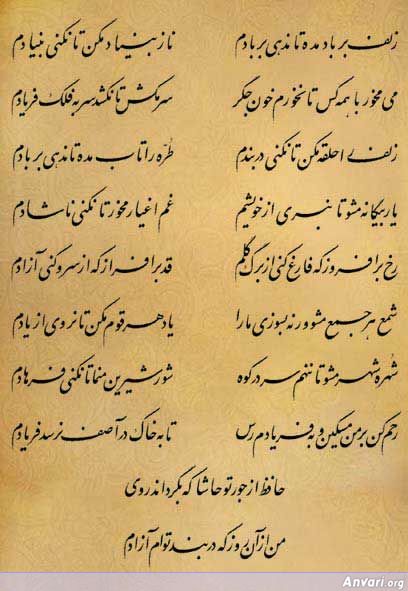 زلف بر باد مده تا ندهی بر بادم ناز بنیاد مکن تا نکنی بنیادم
می مخور با همه کس تا نخورم خون جگر سر مکش تا نکشد سر به فلک فریادم
زلف را حلقه مکن تا نکنی در بندم طره را تاب مده تا ندهی بر بادم
یار بیگانه مشو تا نبری از خویشم غم اغیار مخور تا نکنی ناشادم
رخ برافروز که فارغ کنی از برگ گلم قد برافراز که از سرو کنی آزادم
شمع هر جمع مشو ور نه بسوزی ما را یاد هر قوم مکن تا نروی از یادم
شهره شهر مشو تا ننهم سر در کوه شور شیرین منما تا نکنی فرهادم
رحم کن بر من مسکین و به فریادم رس تا به خاک در آصف نرسد فریادم
حافظ از جور تو حاشا که بگرداند روی
من از آن روز که در بند توام آزادم
Anvari.org